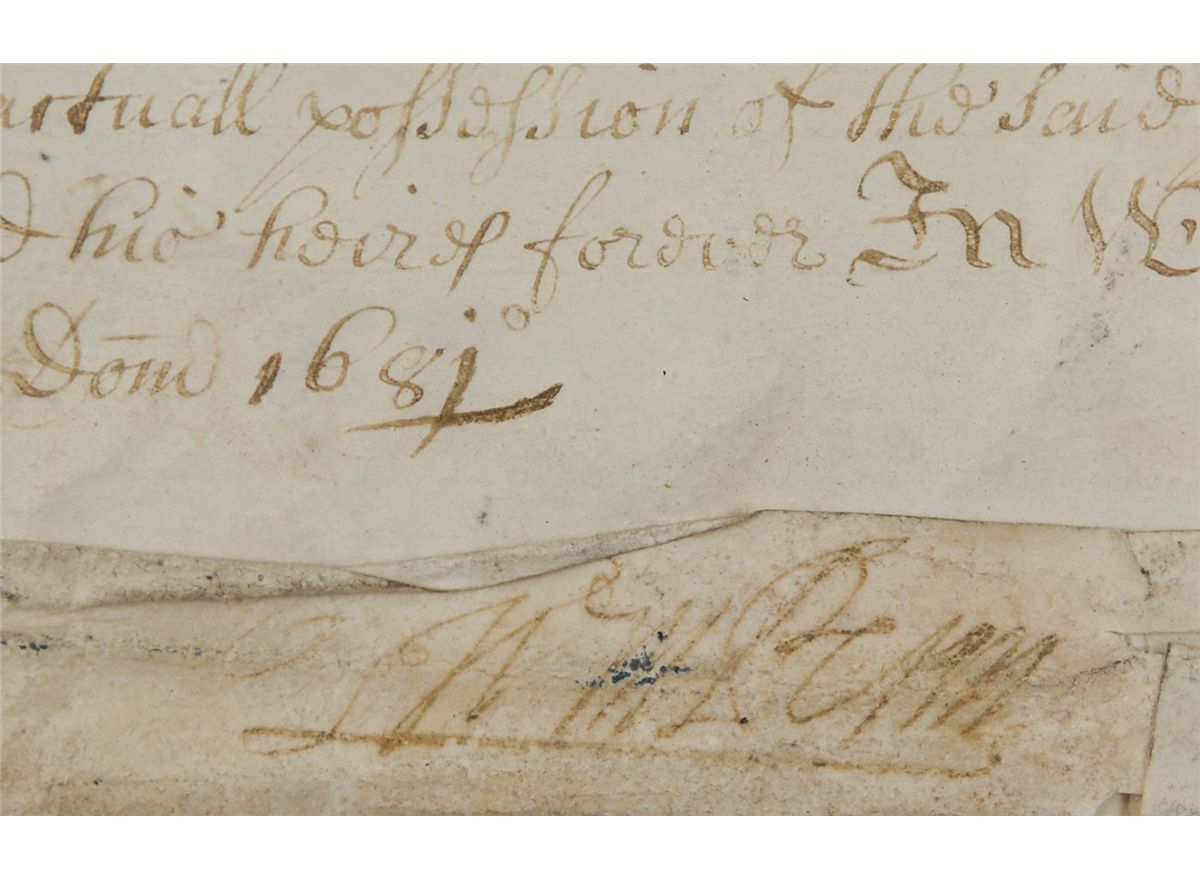 actuall possession of the said
his heires forever In W
Dom̄ 1681
Wm Penn